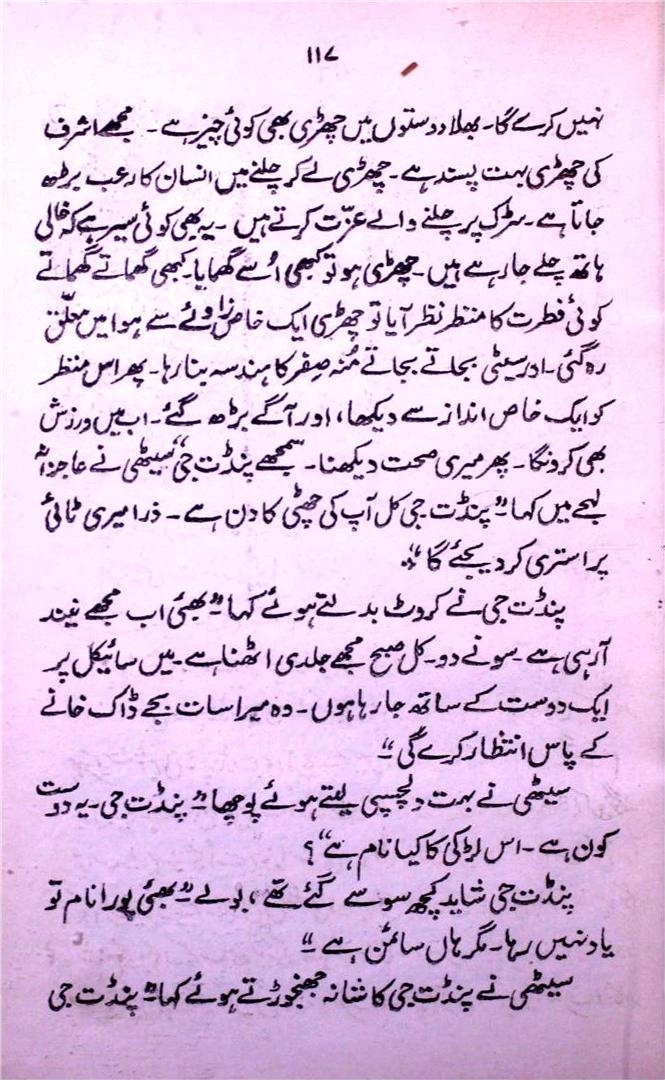 ۱۱۷
نہیں کرے گا۔ بھلا دوستوں میں چھڑی بھی کوئی چیز ہے ۔ مجھے اشرف
کی چھڑی بہت پسند ہے ۔ چھڑی لے کر چلنے میں انسان کا رعب بڑھ
جاتا ہے ۔ سڑک پر چلنے والے عزّت کرتے ہیں ۔ یہ بھی کوئی سیر ہے کہ خالی
ہاتھ چلے جا رہے ہیں ۔ چھڑی ہو تو کبھی اُسے گھمایا۔ کبھی گھماتے گھماتے
کوئی فطرت کا منظر نظر آیا تو چھڑی ایک خاص زاوئے سے ہوا میں معلّق
رہ گئی ۔ اور سیٹی بجاتے بجاتے مُنہ صفر کا ہندسہ بنا رہا ۔ پھر اس منظر
کو ایک خاص انداز سے دیکھا، اور آگے بڑھ گئے ۔ اب میں ورزش
بھی کرونگا ۔ پھر میری صحت دیکھنا ۔ سمجھے پنڈت جی“ سیٹھی نے عاجزانہ
لہجے میں کہا ”پنڈت جی کل آپ کی چھٹی کا دن ہے ۔ ذرا میری ٹائی
پر استری کر دیجئے گا“۔
پنڈت جی نے کروٹ بدلتے ہوئے کہا ”بھئی اب مجھے نیند
آ رہی ہے ۔ سونے دو۔ کل صبح مجھے جلدی اٹھنا ہے ۔ میں سائیکل پر
ایک دوست کے ساتھ جا رہا ہوں ۔ وہ میرا سات بجے ڈاک خانے
کے پاس انتظار کرے گی“
سیٹھی نے بہت دلچسپی لیتے ہوئے پوچھا ”پنڈت جی ۔ یہ دوست
کون ہے ۔ اس لڑکی کا کیا نام ہے“؟
پنڈت جی شاید کچھ سو سے گئے تھے ، بولے ”بھئی پورا نام تو
یاد نہیں رہا ۔ مگر ہاں سائمن ہے“
سیٹھی نے پنڈت جی کا شانہ جھنجوڑتے ہوئے کہا ”پنڈت جی